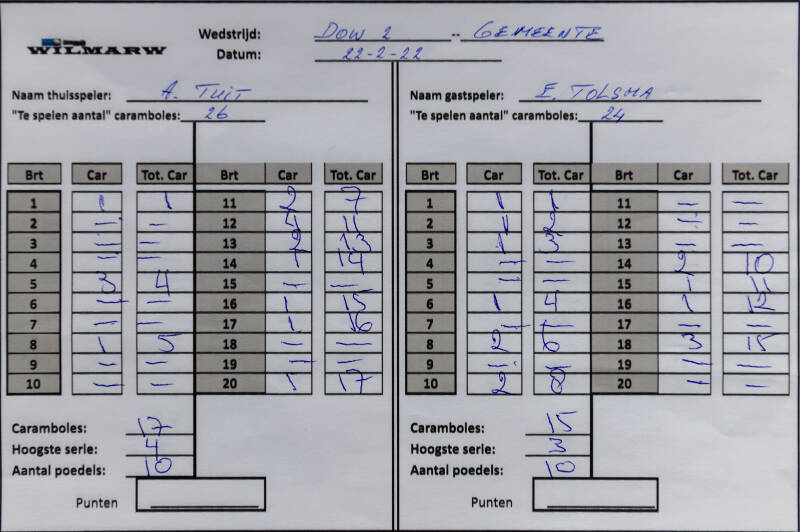 WILMARW
Wedstrijd: DOW 2 -- GEMEENTE
Datum: 22-2-22
Naam thuisspeler: A. TUIT
"Te spelen aantal" caramboles: 26
Brt Car Tot. Car Brt Car Tot. Car
1 1 1 11 2 7
2 — — 12 4 11
3 — — 13 2 13
4 — — 14 1 14
5 3 4 15 — —
6 — — 16 1 15
7 — — 17 1 16
8 1 5 18 — —
9 — — 19 — —
10 — — 20 1 17
Caramboles: 17
Hoogste serie: 4
Aantal poedels: 10
Punten
Naam gastspeler: E. TOLSMA
"Te spelen aantal" caramboles: 24
Brt Car Tot. Car Brt Car Tot. Car
1 1 1 11 — —
2 1 2 12 — —
3 1 3 13 — —
4 — — 14 2 10
5 — — 15 1 11
6 1 4 16 1 12
7 — — 17 — —
8 2 6 18 3 15
9 — — 19 — —
10 2 8 20 — —
Caramboles: 15
Hoogste serie: 3
Aantal poedels: 10
Punten